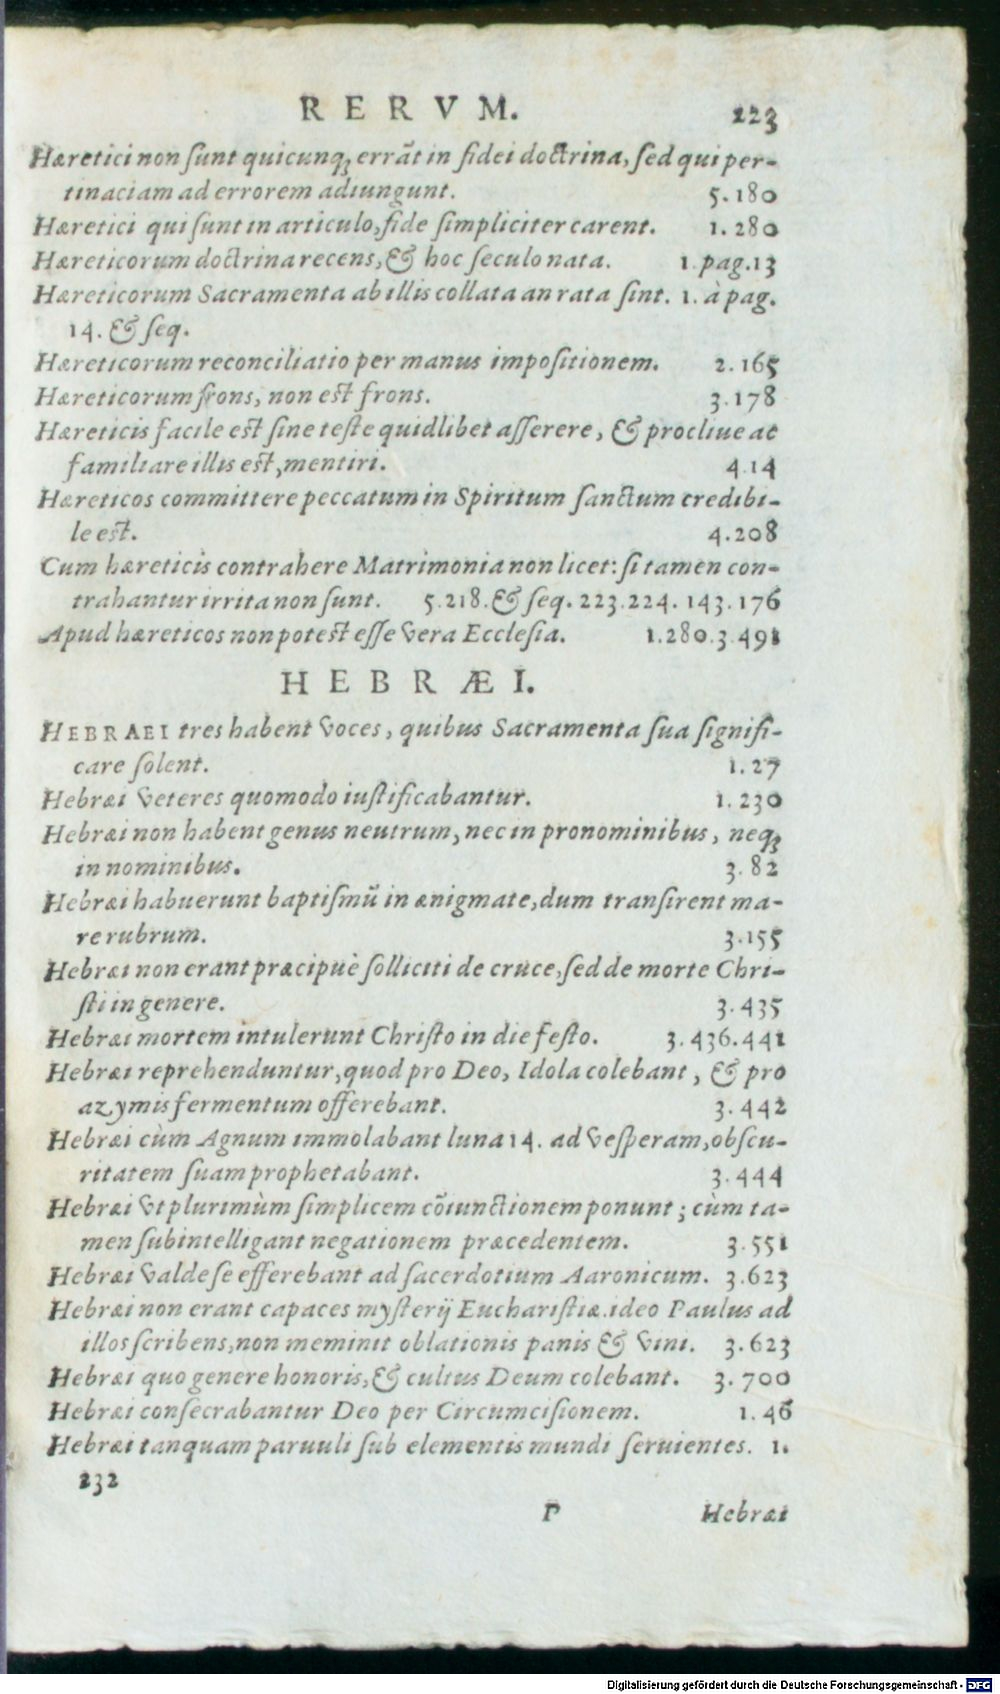 RERVM. 223
Hæretici non sunt quicunq; errãt in fidei doctrina, sed qui per-
tinaciam ad errorem adiungunt. 5.180
Hæretici qui sunt in articulo, fide simpliciter carent. 1.280
Hæreticorum doctrina recens, & hoc seculo nata. 1.pag.13
Hæreticorum Sacramenta ab illis collata an rata sint. 1. à pag.
14. & seq.
Hæreticorum reconciliatio per manus impositionem. 2.165
Hæreticorum frons, non est frons. 3.178
Hæreticis facile est sine teste quidlibet asserere, & procliue ac
familiare illis est, mentiri. 4.14
Hæreticos committere peccatum in Spiritum sanctum credibi-
le est. 4.208
Cum hæreticis contrahere Matrimonia non licet: si tamen con-
trahantur irrita non sunt. 5.218. & seq. 223.224. 143. 176
Apud hæreticos non potest esse vera Ecclesia. 1.280.3.491
HEBRÆI.
HEBRAEI tres habent voces, quibus Sacramenta sua signifi-
care solent. 1.27
Hebræi veteres quomodo iustificabantur. 1.230
Hebræi non habent genus neutrum, nec in pronominibus, neq;
in nominibus. 3.82
Hebræi habuerunt baptismũ in ænigmate, dum transirent ma-
re rubrum. 3.155
Hebræi non erant præcipuè solliciti de cruce, sed de morte Chri-
sti in genere. 3.435
Hebræi mortem intulerunt Christo in die festo. 3.436.441
Hebræi reprehenduntur, quod pro Deo, Idola colebant, & pro
azymis fermentum offerebant. 3.442
Hebræi cùm Agnum immolabant luna 14. ad vesperam, obscu-
ritatem suam prophetabant. 3.444
Hebræi vt plurimùm simplicem cõiunctionem ponunt; cùm ta-
men subintelligant negationem præcedentem. 3.551
Hebræi valde se efferebant ad sacerdotium Aaronicum. 3.623
Hebræi non erant capaces mysterij Eucharistiæ. ideo Paulus ad
illos scribens, non meminit oblationis panis & vini. 3.623
Hebræi quo genere honoris, & cultus Deum colebant. 3.700
Hebræi consecrabantur Deo per Circumcisionem. 1.46
Hebræi tanquam paruuli sub elementis mundi seruientes. 1.
232
P Hebræi
Digitalisierung gefördert durch die Deutsche Forschungsgemeinschaft - DFG